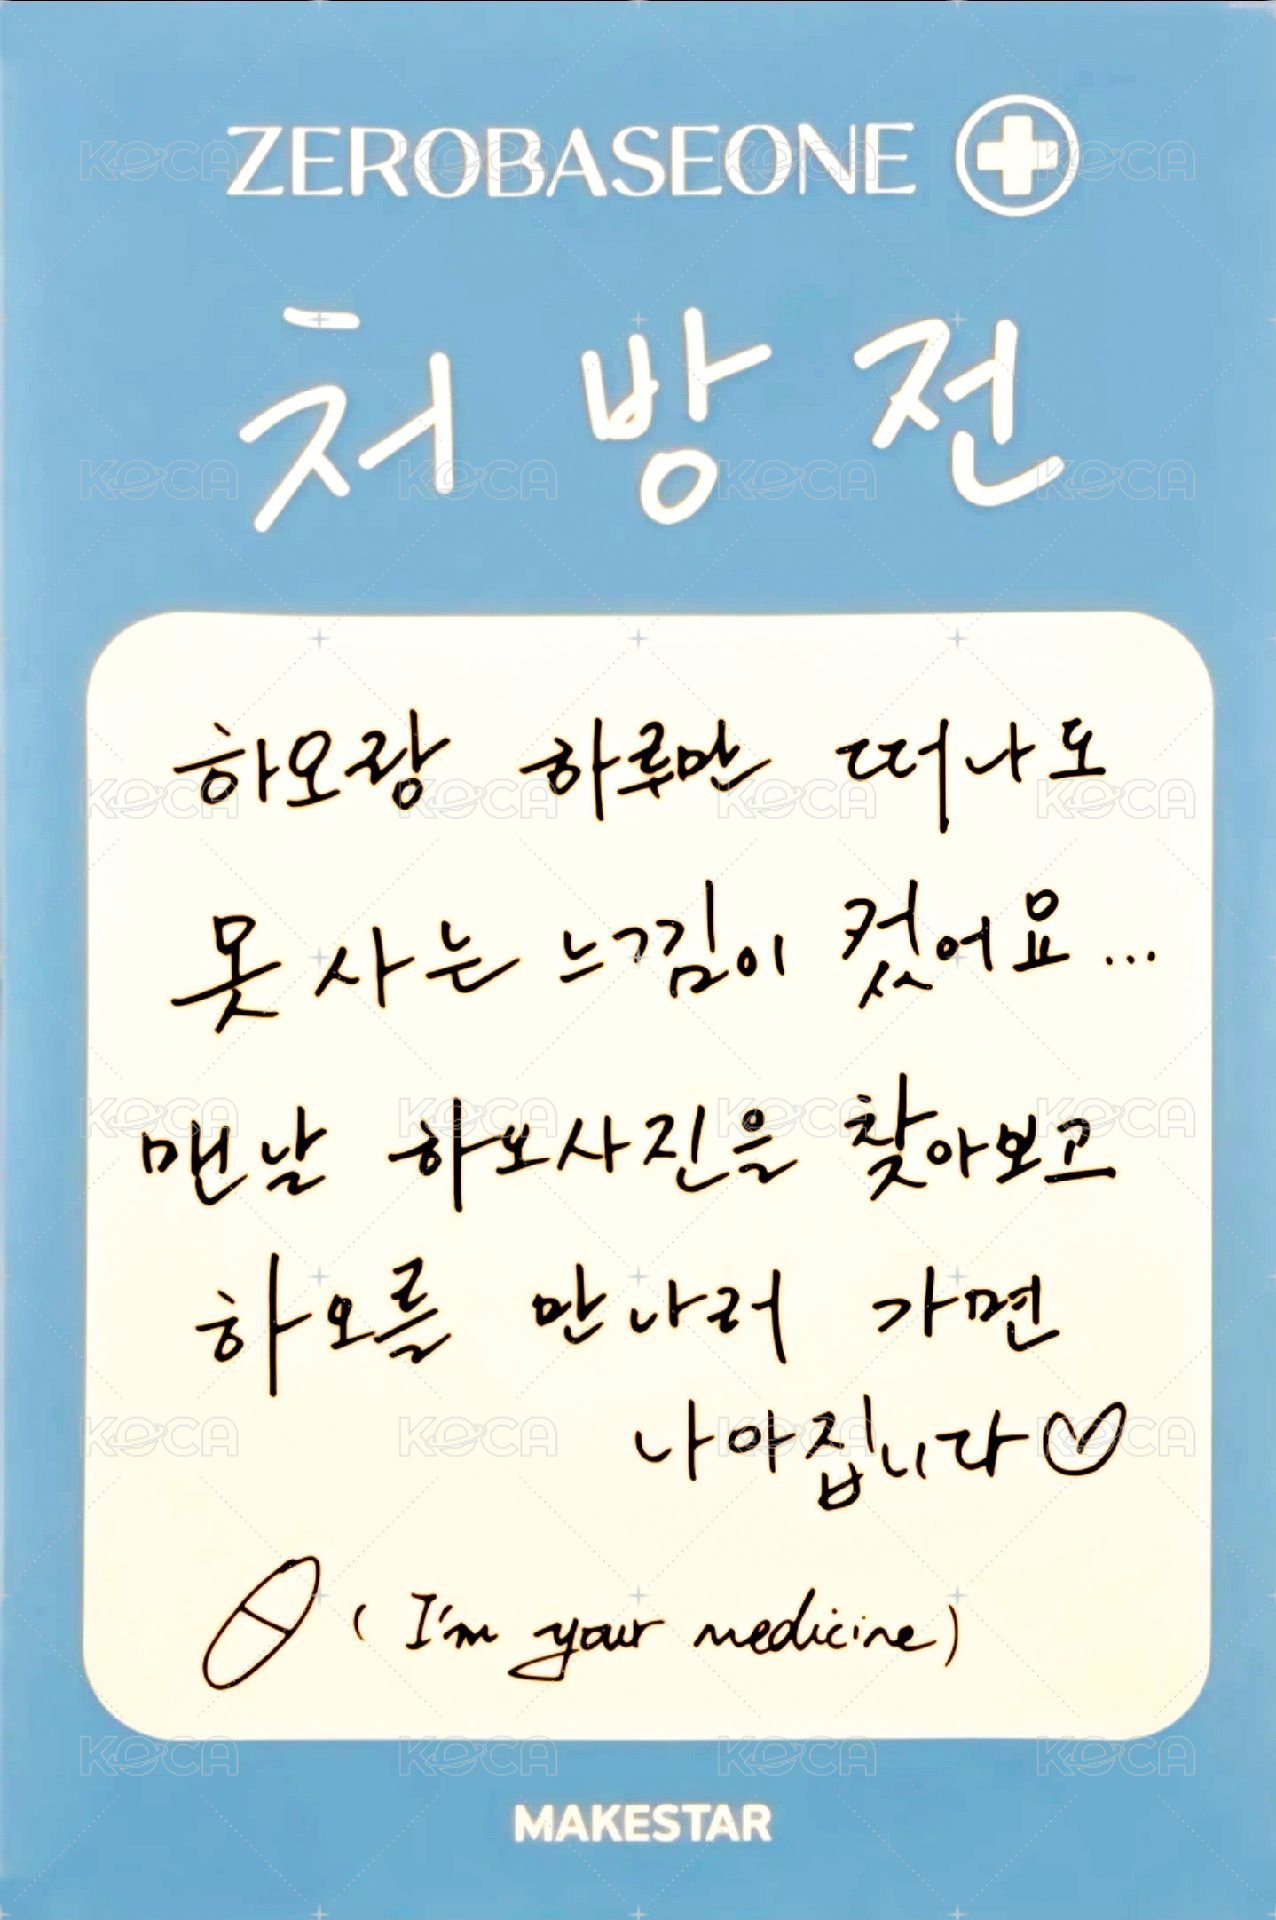 ZEROBASEONE
처방전
하오랑 하루만 떠나도
못 사는 느낌이 컸어요...
맨날 하오사진을 찾아보고
하오를 만나러 가면
나아집니다♡
( I'm your medicine)
MAKESTAR
KOCA